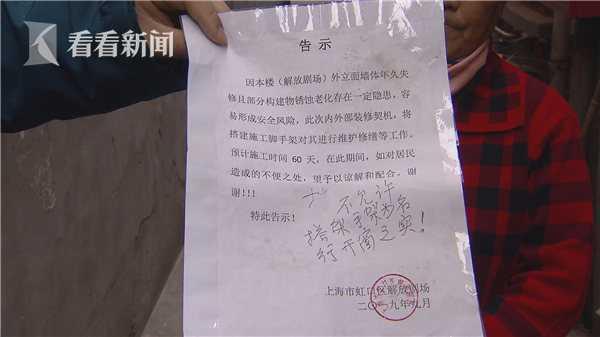 看看新闻
告示
因本楼（解放剧场）外立面墙体年久失
修且部分构建物锈蚀老化存在一定隐患，容
易形成安全风险，此次内外部装修契机，将
搭建施工脚手架对其进行维护修缮等工作。
预计施工时间 60 天，在此期间，如对居民
造成的不便之处，望予以谅解和配合。谢
谢!!!
特此告示！
不允许
搭架手架为名
行开窗之实！
上海市虹口区解放剧场
二〇一九年九月